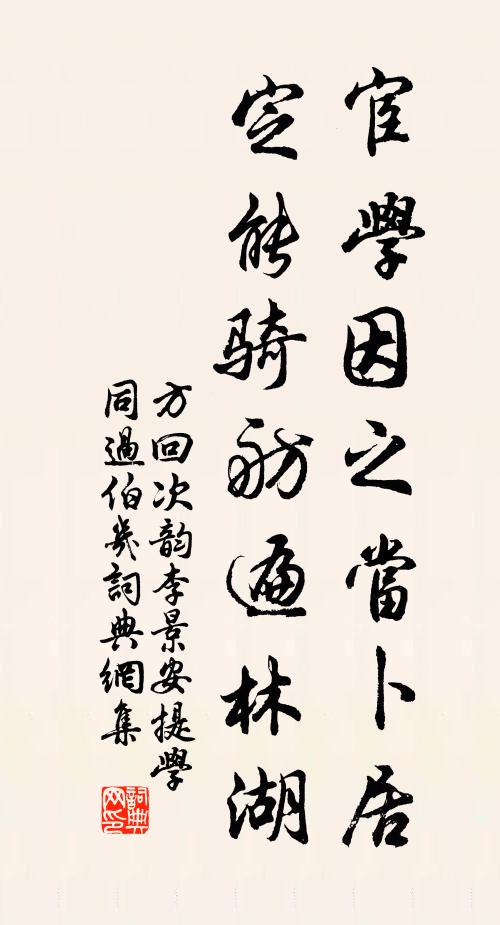 宦學因之當卜居
定能騎舫遍林湖
方回次韵李景安提學
同過伯幾詞典網集
詞典網印